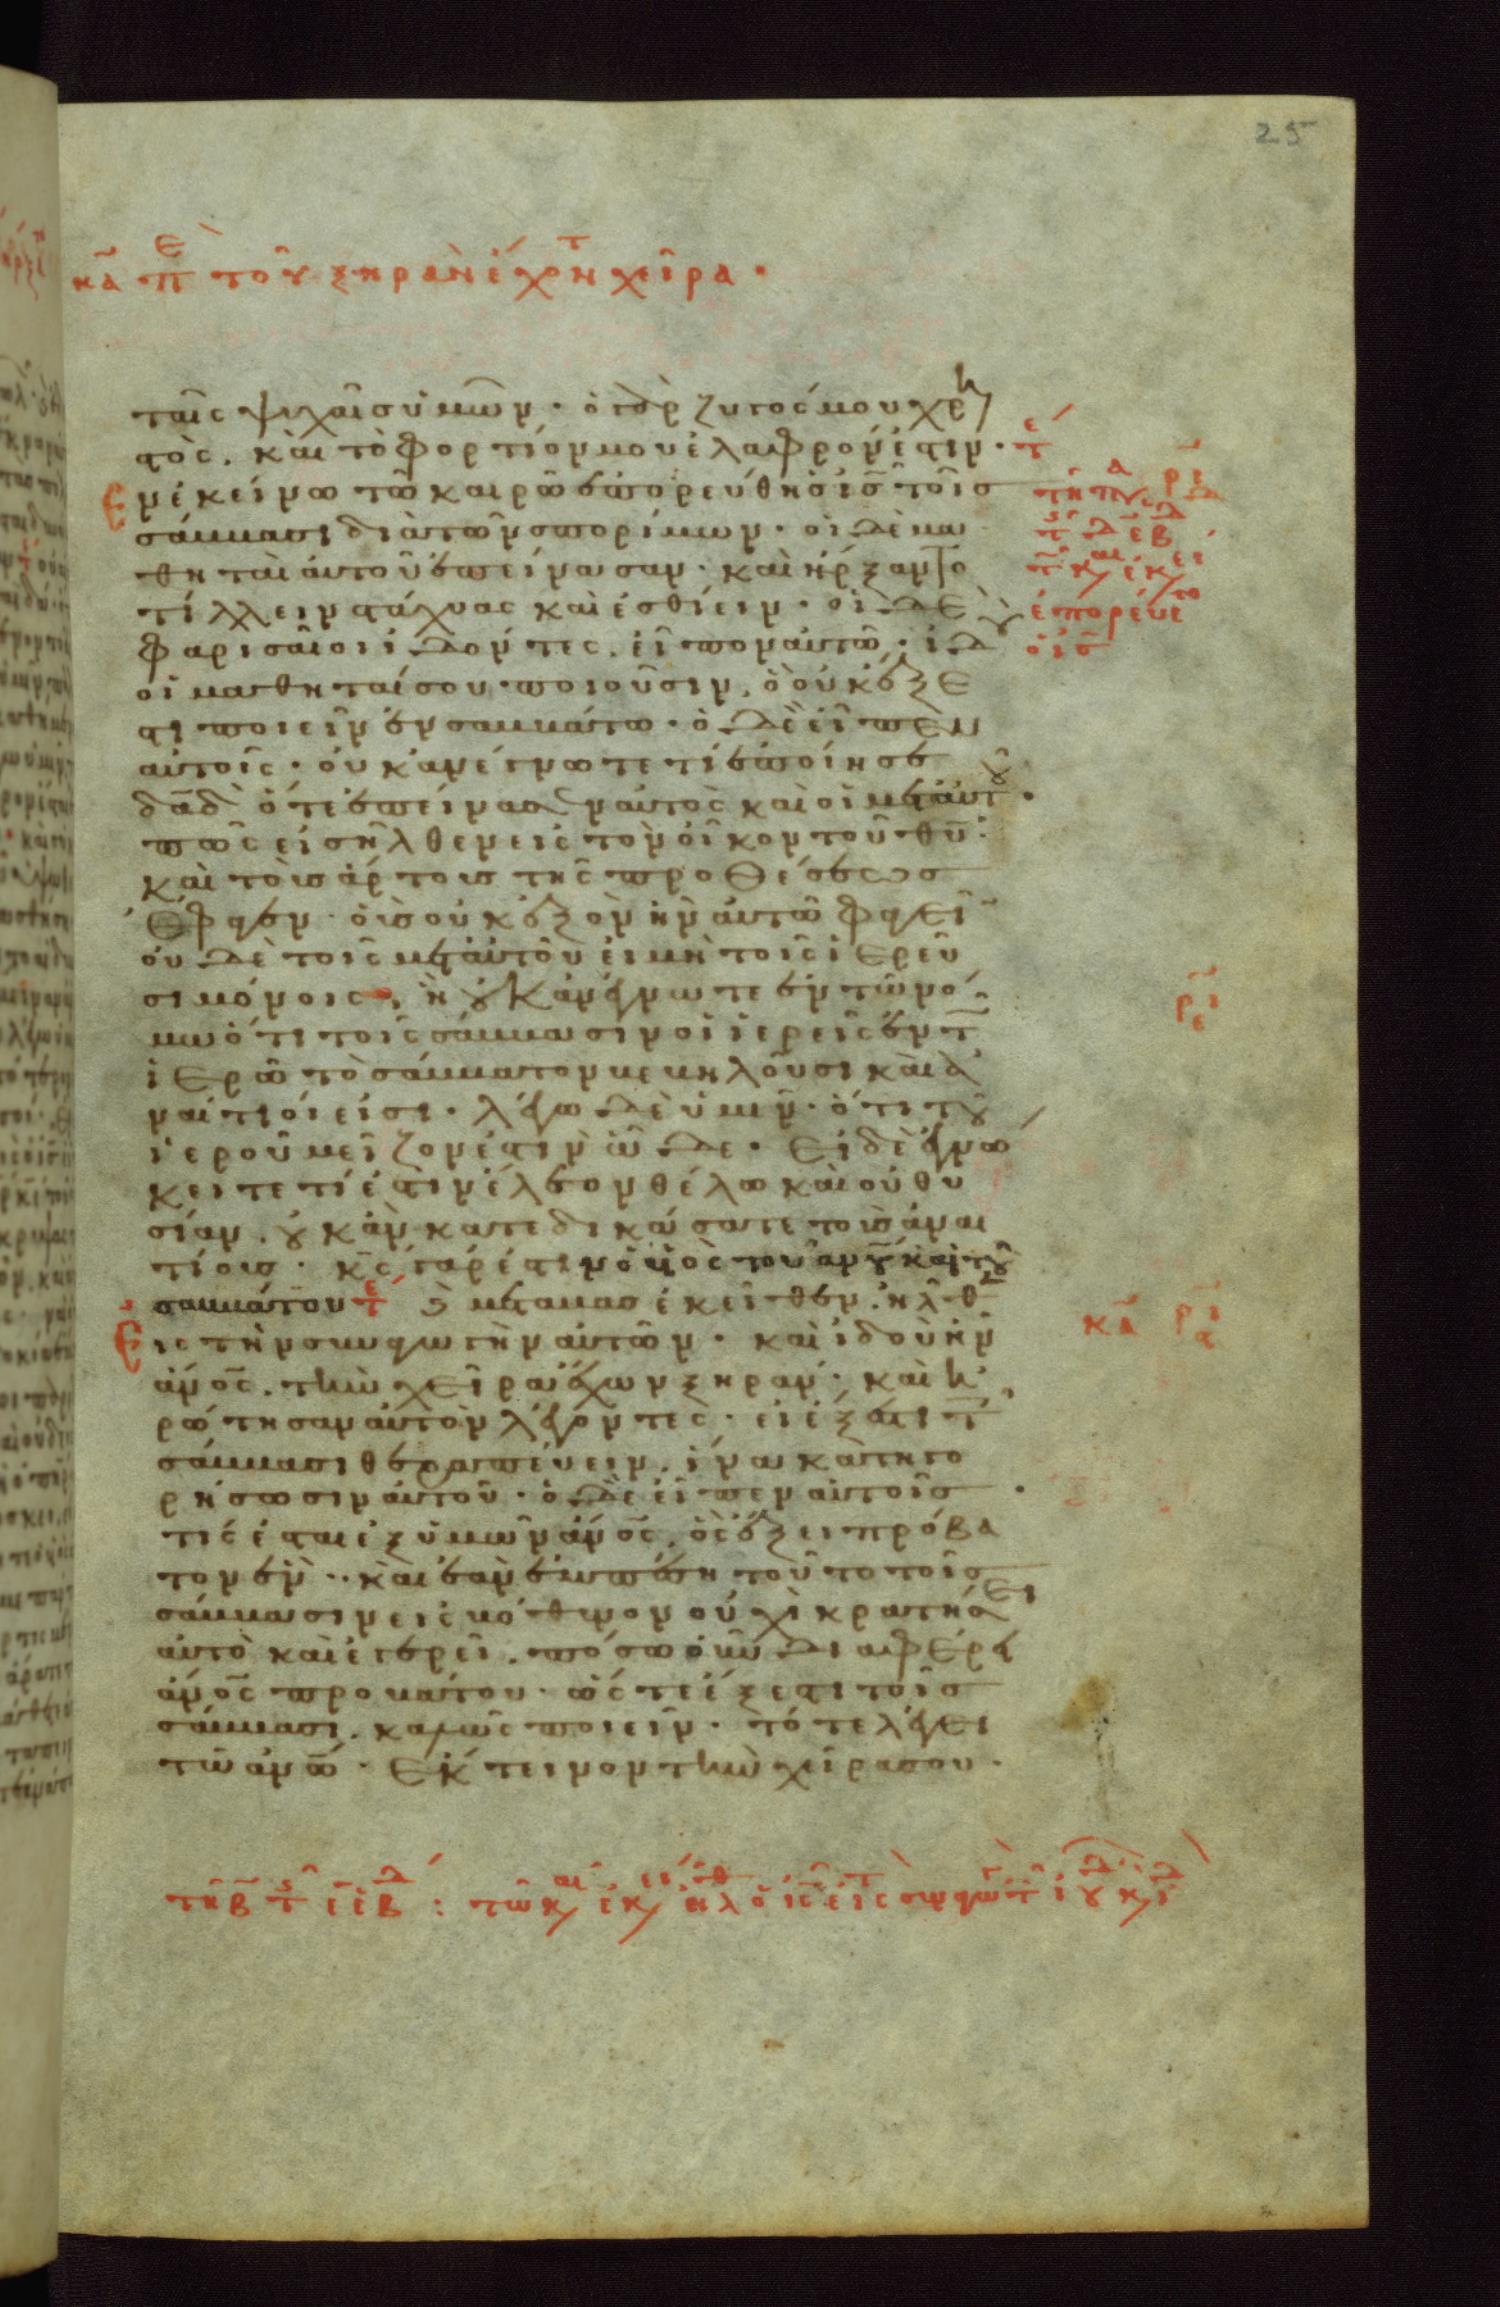 25
κα πε του ξηρὰν ἔχοντ χεῖρα.
ταῖς ψυχαῖς ὑμῶν. ὁ γὰρ ζυγός μου χρη
στὸς. καὶ τὸ φορτίον μου ἐλαφρόν ἐστιν. τε
Ἐν ἐκείνω τῶ καιρῶ ἐπορεύθη ὁ ις τοῖς
σάββασι διὰ τῶν σπορίμων. οἱ δὲ μα
θηταὶ αὐτοῦ ἐπείνασαν. καὶ ἤρξαντο
τίλλειν στάχυας καὶ ἐσθίειν. οἱ δὲ
φαρισαῖοι ἰδόντες. εἶπον αὐτῶ. ἰδοὺ
οἱ μαθηταί σου ποιοῦσιν, ὃ οὐκ ἔξε
στι ποιεῖν ἐν σαββάτω. ὁ δὲ εἶπεν
αὐτοῖς. οὐκ ἀνέγνωτε τί ἐποίησε
δαδ ὅτε ἐπείνασεν αὐτὸς καὶ οἱ μετ αὐτοῦ.
πῶς εἰσῆλθεν εἰς τὸν οἶκον τοῦ θυ
καὶ τοὺς ἄρτους τῆς προθέσεως
ἔφαγεν. οὓς οὐκ ἐξὸν ἦν αὐτῶ φαγεῖν
οὐδὲ τοῖς μετ αὐτοῦ εἰ μὴ τοῖς ἱερεῦ
σι μόνοις, ἢ οὐκ ἀνέγνωτε ἐν τῶ νό
μω ὅτι τοῖς σάββασιν οἱ ἱερεῖς ἐν τ
ἱερῶ τὸ σάββατον βεβηλοῦσι καὶ ἀ
ναίτιοί εἰσι. λέγω δὲ ὑμῖν. ὅτι τοῦ
ἱεροῦ μεῖζον ἐστιν ὧδε. Εἰ δὲ ἐγνώ
κειτε τί ἐστιν ἔλεον θέλω καὶ οὐ θυ
σίαν. οὐκ ἂν κατεδικάσατε τοὺς ἀναι
τίους. κς γάρ ἐστιν ὁ υἱὸς τοῦ ανου καὶ τοῦ
σαββάτου τε μεταβὰς ἐκεῖθεν. ἦλθεν
Εἰς τὴν συναγωγὴν αὐτῶν. καὶ ἰδοὺ ἦν
ανος. τὴν χεῖρα ἔχων ξηράν. καὶ ἠ
ρώτησαν αὐτὸν λέγοντες. εἰ ἔξεστι τ
σάββασι θεραπεύειν. ἵνα κατηγο
ρήσωσιν αὐτοῦ. ὁ δὲ εἶπεν αὐτοῖς
τίς ἔσται ἐξ ὑμῶν ανος. ὃς ἕξει πρόβα
τον ἓν. καὶ ἐὰν ἐμπέση τοῦτο τοῖς
σάββασιν εἰς βόθυνον οὐχὶ κρατήσει
αὐτὸ καὶ ἐγερεῖ. πόσω οὖν διαφέρει
ανος προβάτου. ὥστε ἔξεστι τοῖς
σάββασι. καλῶς ποιεῖν. τότε λέγει
τῶ ανω. Ἔκτεινον τὴν χεῖρα σου.
ἐπορεύετο
ὁ ις
ριε
κα ρις